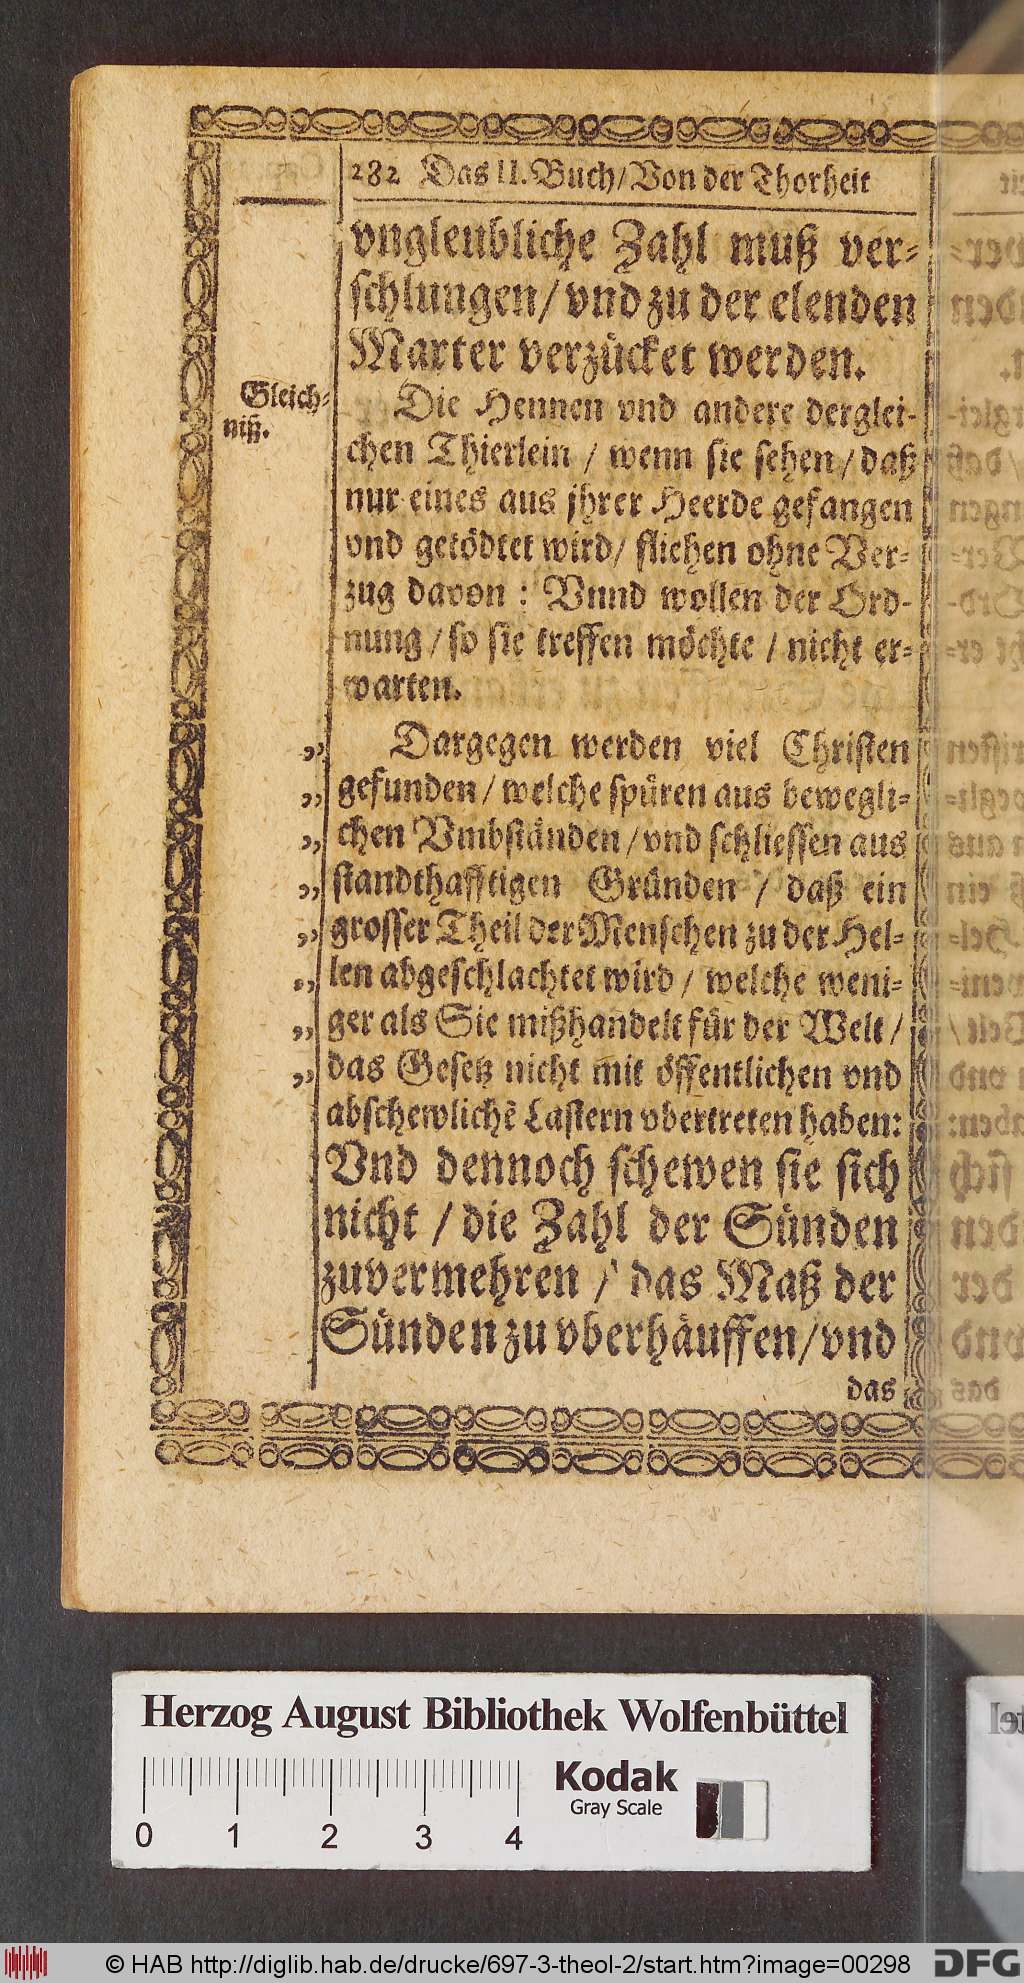 282 Das II. Buch/Von der Thorheit
vngleubliche Zahl muß ver-
schlungen/vnd zu der elenden
Marter verzücket werden.
Gleich-
niß.
Die Hennen vnd andere derglei-
chen Thierlein / wenn sie sehen/daß
nur eines aus jhrer Heerde gefangen
vnd getödtet wird/ fliehen ohne Ver-
zug davon : Vnnd wollen der Ord-
nung/so sie treffen möchte / nicht er-
warten.
„ Dargegen werden viel Christen
„ gefunden/welche spüren aus bewegli-
„ chen Vmbständen/vnd schliessen aus
„ standthafftigen Gründen / daß ein
„ grosser Theil der Menschen zu der Hel-
„ len abgeschlachtet wird/ welche weni-
„ ger als Sie mißhandelt für der Welt/
„ das Gesetz nicht mit öffentlichen vnd
abschewlichē Lastern vbertreten haben:
Vnd dennoch schewen sie sich
nicht / die Zahl der Sünden
zuvermehren / das Maß der
Sünden zu vberhäuffen/vnd
das
Herzog August Bibliothek Wolfenbüttel
Kodak
Gray Scale
0 1 2 3 4
© HAB http://diglib.hab.de/drucke/697-3-theol-2/start.htm?image=00298
DFG